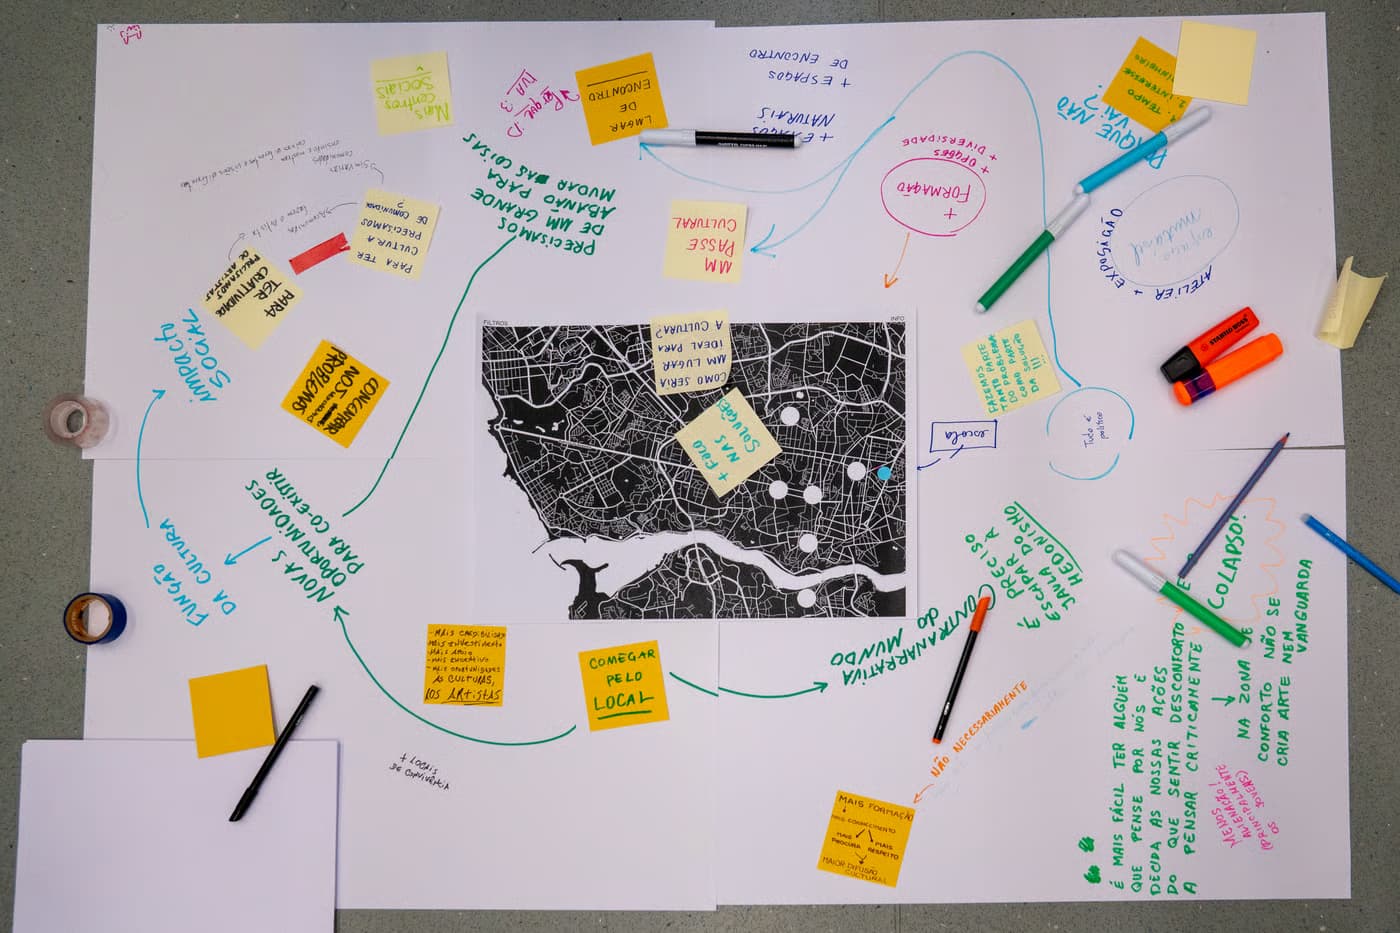 Mais
centros
SOCIAIS
PORQUE :D
IVA :3
LUGAR
DE
ENCONTRO
+ ESPAÇOS
NATURAIS
+ ESPAÇOS
DE ENCONTRO
1. TEMPO
2. INTERESSE
PORQUE NÃO
VAI?
+
FORMAÇÃO
+ OPÇÕES
+ DIVERSIDADE
espaço
mutável
ATELIER + EXPOSIÇÃO
PRECISAMOS
DE UM GRANDE
ABANÃO PARA
MUDAR AS COISAS
UM
PASSE
CULTURAL
PARA TER
CULTURA
PRECISAMOS
DE COMUNIDADE
?
PARA
TER
CRIATIVIDADE
PRECISAMOS
DE ARTISTAS
IMPACTO
SOCIAL
CONCENTRAR
NOS
PROBLEMAS
FILTROS
INFO
COMO SERIA
UM LUGAR
IDEAL PARA
A CULTURA?
+ FOCO
NAS
SOLUÇÕES
FAZEMOS PARTE
TANTO PARTE
DO PROBLEMA
COMO PARTE
DA SOLUÇÃO
!!!
escola
Tudo é
político
NOVAS
OPORTUNIDADES
PARA CO-EXISTIR
FUNÇÃO
DA CULTURA
É PRECISO
ESCAPAR DO
JAULA DO
HEDONISMO
CONTRANARRATIVA
do MUNDO
COLAPSO!
- MAIS CREDIBILIDADE
MAIS INVESTIMENTO
- MAIS APOIO
- MAIS INCENTIVO
- MAIS OPORTUNIDADES
ÀS CULTURAS,
AOS ARTISTAS
COMEÇAR
PELO
LOCAL
+ SÍTIOS
DE CONVIVÊNCIA
NÃO NECESSARIAMENTE
MAIS FORMAÇÃO
MAIS CONHECIMENTO
MAIS
PROCURA
MAIS
RESPEITO
MAIOR DIFUSÃO
CULTURAL
É MAIS FÁCIL TER ALGUÉM
QUE PENSE POR NÓS E
DECIDA AS NOSSAS AÇÕES
DO QUE SENTIR DESCONFORTO E
A PENSAR CRITICAMENTE
NA ZONA DE
CONFORTO NÃO SE
CRIA ARTE NEM
VANGUARDA
MENOS
ALIENAÇÃO!
(PRINCIPALMENTE
OS JOVENS)
STABILO BOSS